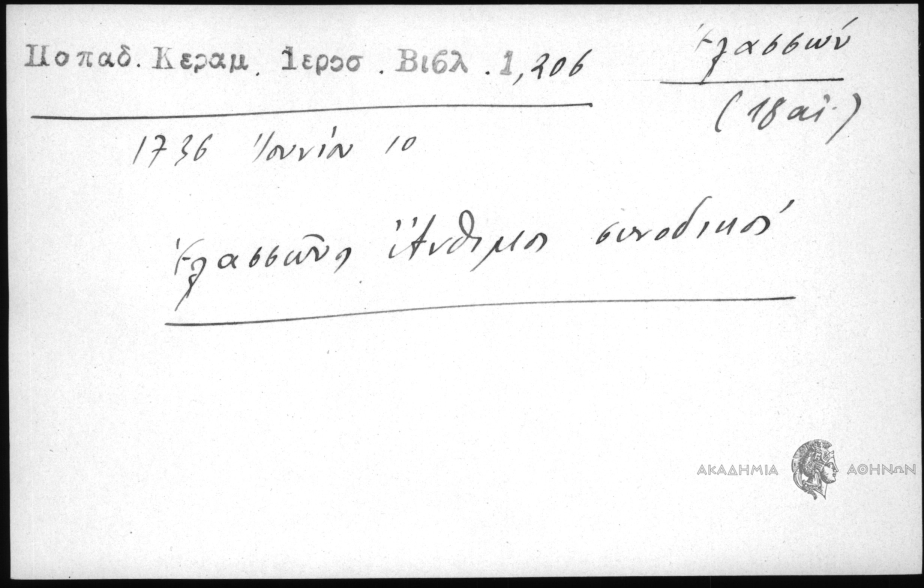 Παπαδ. Κεραμ. Ἱεροσ. Βιβλ. 1, 206
Ἐλασσών
(18 αἰ.)
1736 Ἰουνίου 10
Ἐλασσῶνος Ἄνθιμος συνοδικός
ΑΚΑΔΗΜΙΑ ΑΘΗΝΩΝ